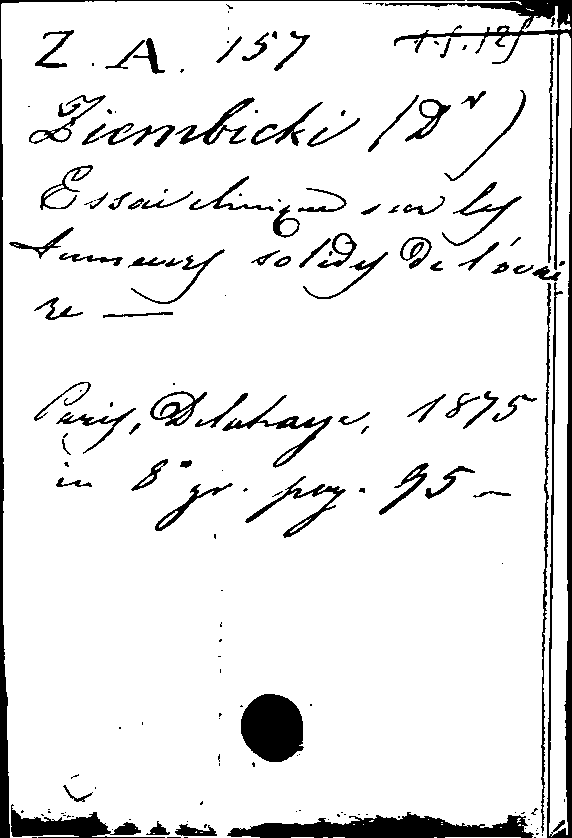 Z. A. 157
Ziembicki (Dr)
Essai clinique sur les
tumeurs solides de l'ovai
re —
Paris, Delahaye, 1875
in 8° gr. pag. 95 —